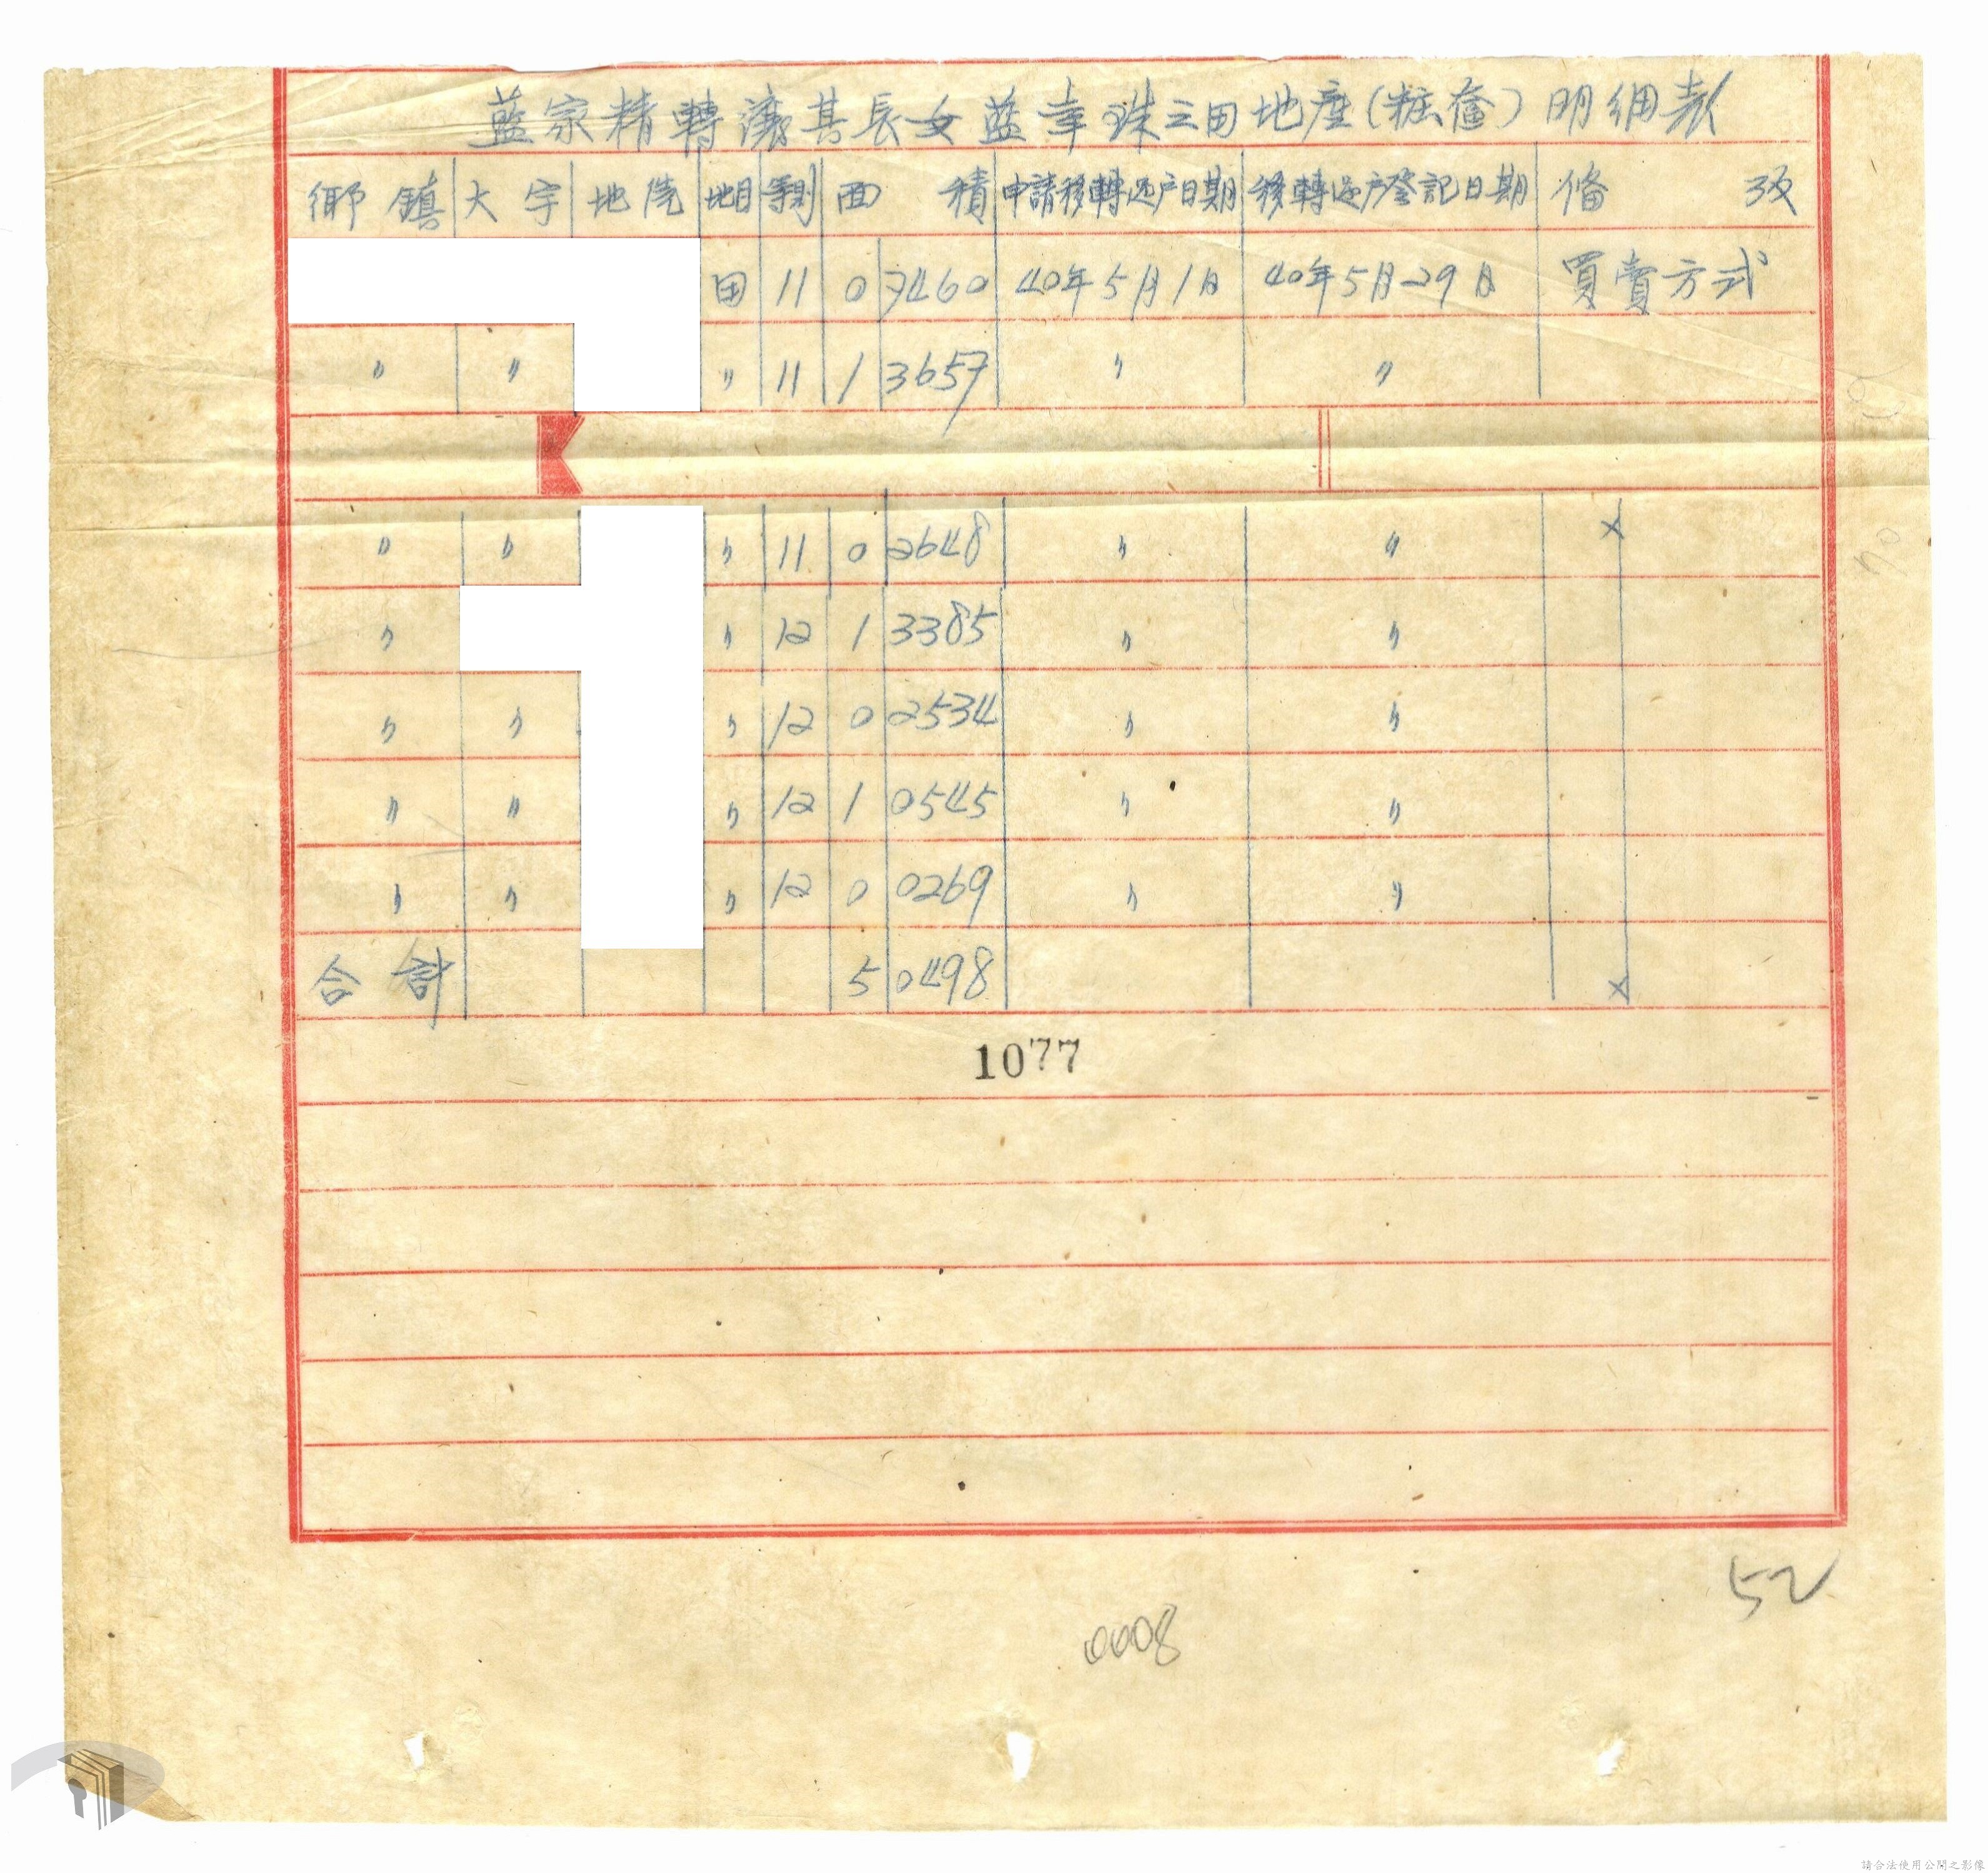 藍家精轉讓其長女藍幸珠三田地產(粧奩)明細表
鄉鎮 大字 地號 地目 等則 面積 申請移轉过户日期 移轉过户登記日期 備攷
田 11 0 7460 40年5月1日 40年5月29日 買賣方式
〃 〃 〃 11 1 3657 〃 〃
〃 〃 〃 11 0 2648 〃 〃
〃 〃 12 1 3385 〃 〃
〃 〃 〃 12 0 2534 〃 〃
〃 〃 〃 12 1 0545 〃 〃
〃 〃 〃 12 0 0269 〃 〃
合計 5 0498
1077
52
0008
請合法使用公開之影像